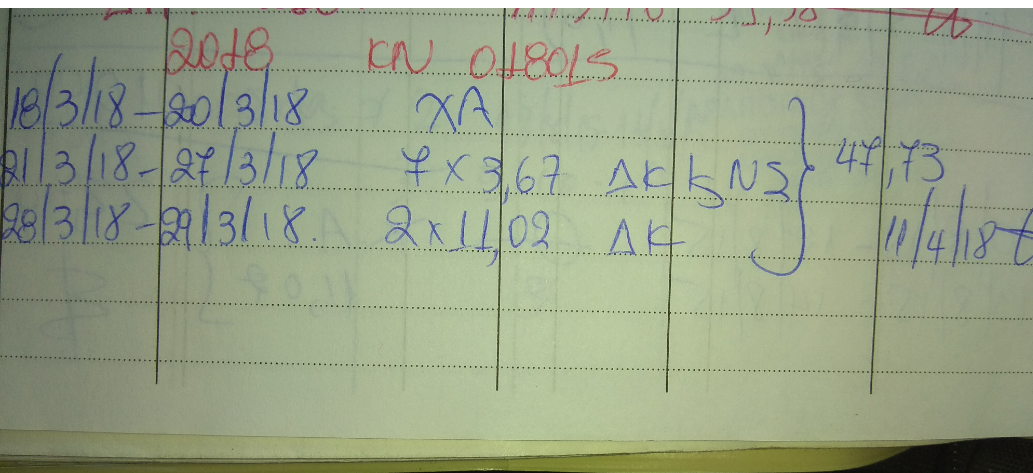 2018 KN 018015
18/3/18 - 20/3/18 XA
21/3/18 - 27/3/18 7 x 3,67 ΔΚ ΚΝΣ
28/3/18 - 29/3/18. 2 x 11,02 ΔΚ
47,73
11/4/18